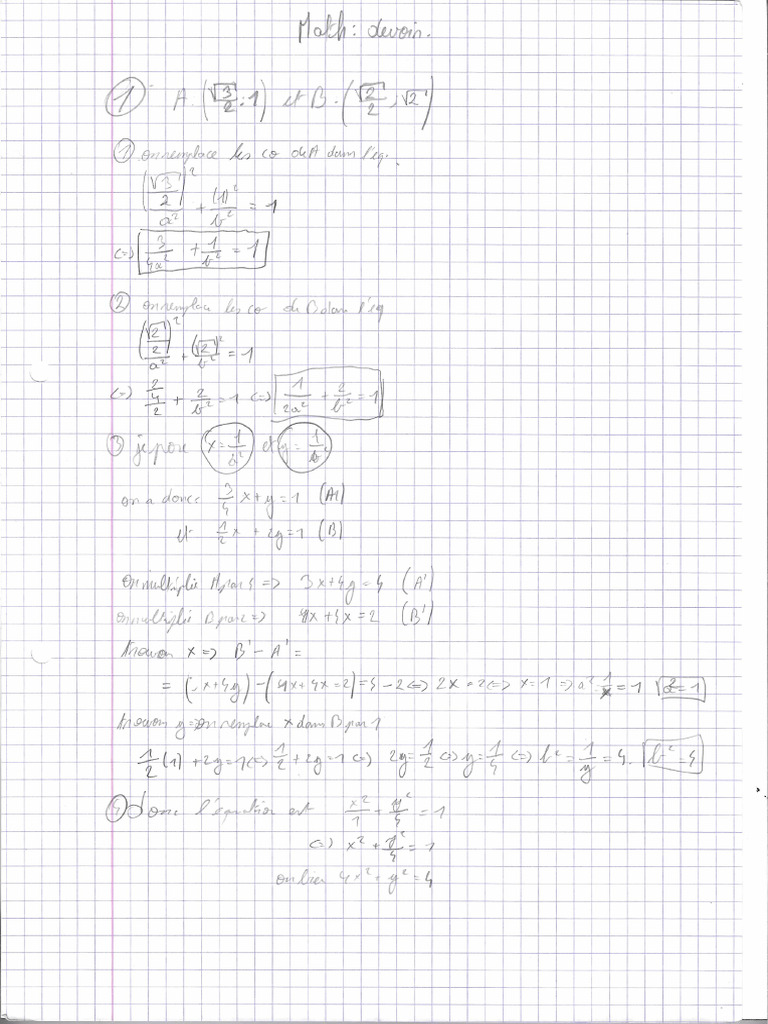 Math : devoir.
① A. (√3/2 ; 1) et B. (√2/2 ; √2)
① on remplace les co de A dans l'éq.
(√3/2)²/a² + (1)²/b² = 1
<=> 3/4a² + 1/b² = 1
② on remplace les co de B dans l'éq
(√2/2)²/a² + (√2)²/b² = 1
<=> 2/4/2 + 2/b² = 1 <=> 1/2a² + 2/b² = 1
③ je pose x = 1/ ² et y = 1/b
on a donc: 3/4 x + y = 1 (A)
et 1/2 x + 2y = 1 (B)
on multiplie A par 4 => 3x + 4y = 4 (A')
on multiplie B par 2 => x + 4x = 2 (B')
Trouvons x => B' - A' =
= ( x + 4y) - ( x + 4x = 2) = 4 - 2 <=> 2x = 2 <=> x = 1 => a² = 1/x = 1 a² = 1
Trouvons y => on remplace x dans B par 1
1/2 (1) + 2y = 1 <=> 1/2 + 2y = 1 <=> 2y = 1/2 <=> y = 1/4 <=> b² = 1/y = 4. b² = 4
④ donc l'équation est x²/1 + y²/4 = 1
<=> x² + y²/4 = 1
on bien 4x² + y² = 4